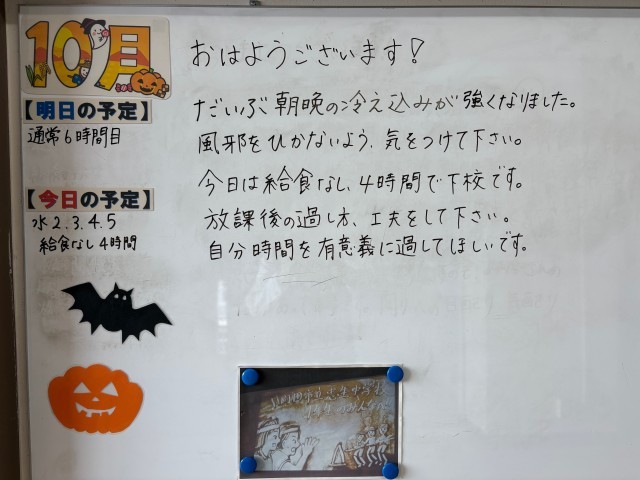 10月
おはようございます!
だいぶ朝晩の冷え込みが強くなりました。
風邪をひかないよう、気をつけて下さい。
今日は給食なし、4時間で下校です。
放課後の過し方、工夫をして下さい。
自分時間を有意義に過してほしいです。
【明日の予定】
通常6時間目
【今日の予定】
水2.3.4.5
給食なし4時間